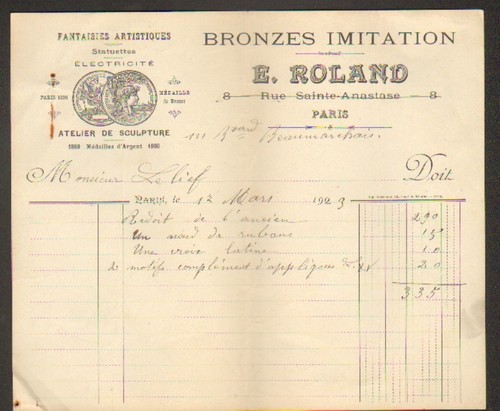 FANTAISIES ARTISTIQUES
Statuettes
ÉLECTRICITÉ
PARIS
MÉDAILLE
de Bronze
ATELIER DE SCULPTURE
Médailles d'Argent
BRONZES IMITATION
E. ROLAND
8 Rue Sainte-Anastase 8
PARIS
111 Bard Beaumarchais.
Monsieur Lelief Doit
PARIS, le 12 Mars 1923
Redoit de l'ancien 290
Un nœud de rubans 15
Une croix latine 10
2 motifs complément d'appliques L. XV 20
335